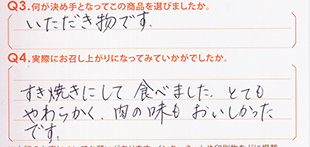 Q3.何が決め手となってこの商品を選びましたか。
いただき物です。
Q4.実際にお召し上がりになってみていかがでしたか。
すき焼きにして 食べました。とても
やわらかく、肉の味も おいしかった
です。